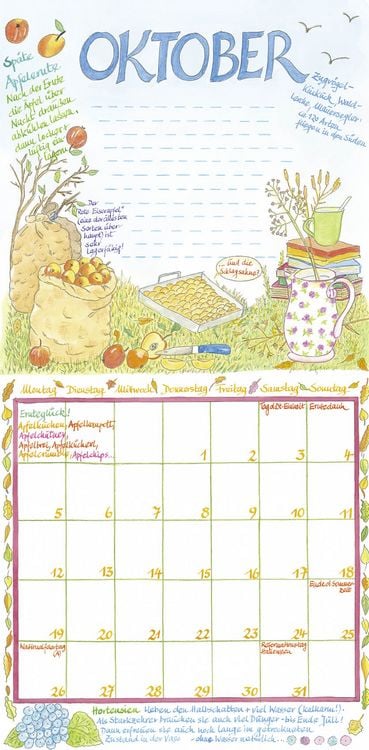 OKTOBER
Späte
Apfelernte
Nach der Ernte
die Äpfel über
Nacht draußen
abkühlen lassen,
dann locker +
luftig ein-
lagern.
Zugvögel-
Kuckuck, Wald-
Laube, Mauersegler
ca 120 Arten
fliegen in den Süden
Der
"Rote Eiserapfel"
(eine der ältesten
Sorten über-
haupt) ist
sehr
lagerfähig!
...und die
Schlagsahne?
Montag Dienstag Mittwoch Donnerstag Freitag Samstag Sonntag
Ernteglück!
Apfelkuchen, Apfelkompott,
Apfelchutney,
Apfelbrei, Apfelkücherl,
Apfelcrumble, Apfelchips...
Tag d. Dt. Einheit Erntedank
1 2 3 4
5 6 7 8 9 10 11
12 13 14 15 16 17 18
Ende d. Sommer-
zeit
19 20 21 22 23 24 25
Nationalfeiertag
(A)
Reformationstag
Halloween
26 27 28 29 30 31
Hortensien lieben den Halbschatten + viel Wasser (kalkarm!).
Als Starkzehrer brauchen sie auch viel Dünger - bis Ende Juli!
Dann erfreuen sie auch noch lange im getrockneten
Zustand in der Vase - ohne Wasser natürlich...